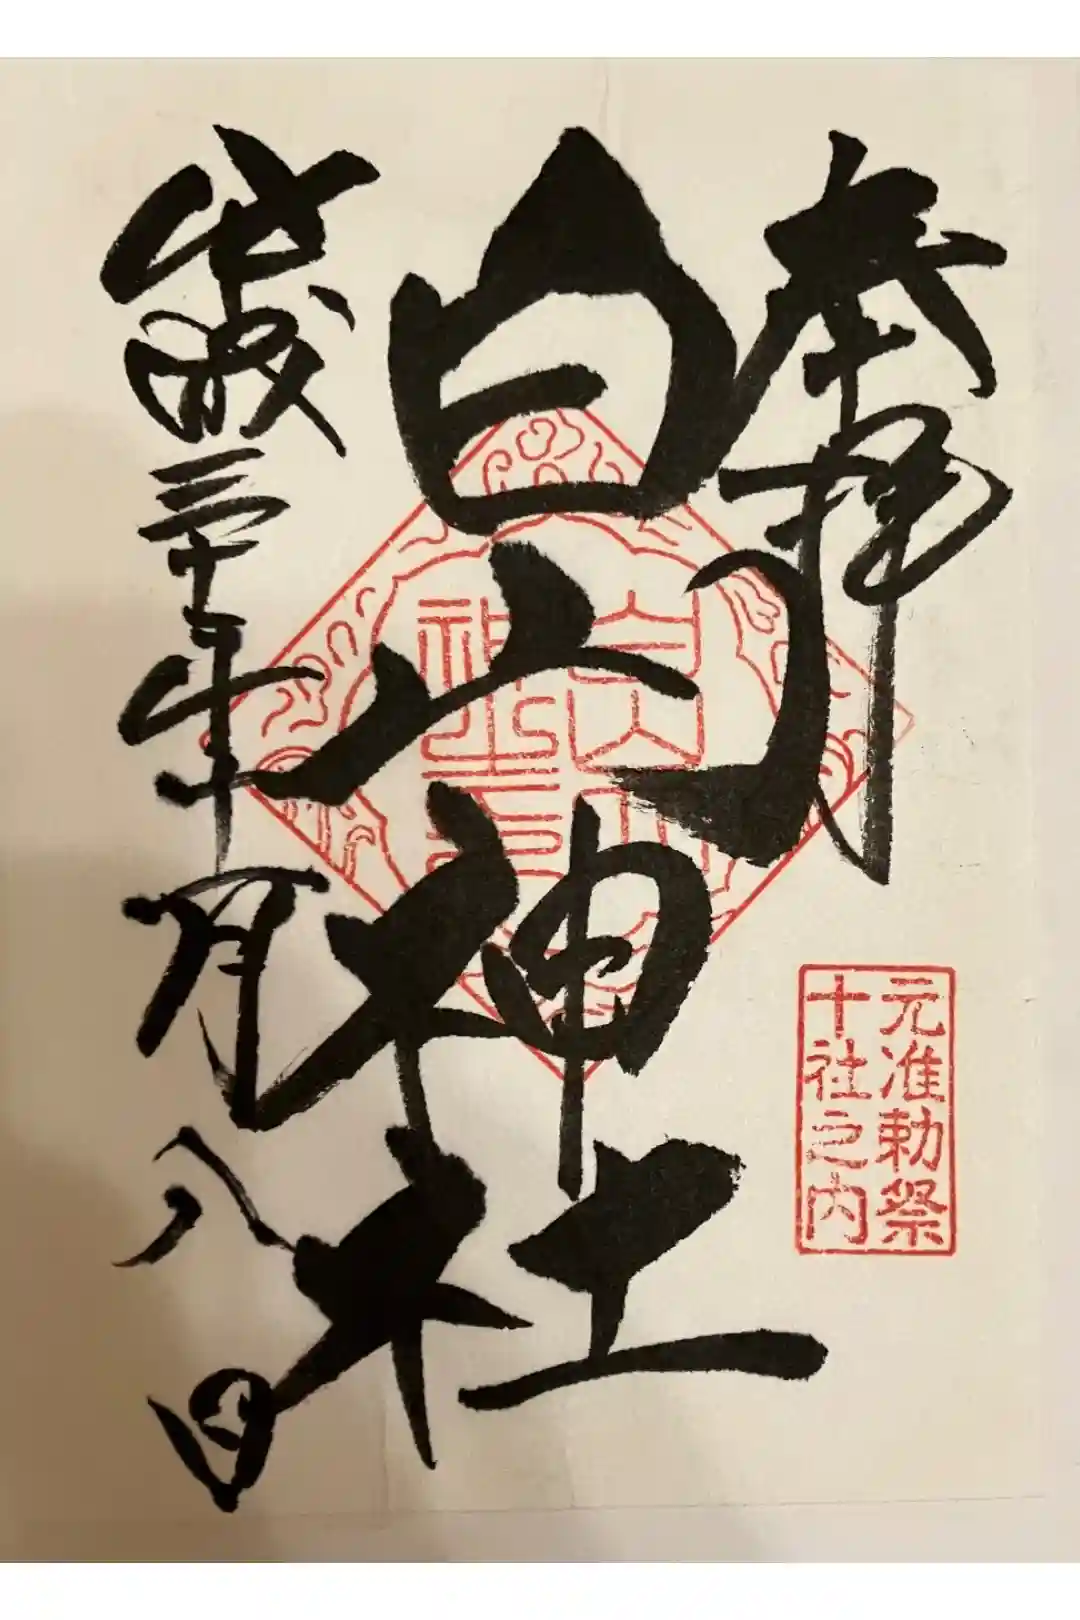 奉拝
白山神社
白山神
社之印
元准勅祭
十社之内
平成三十年一月八日